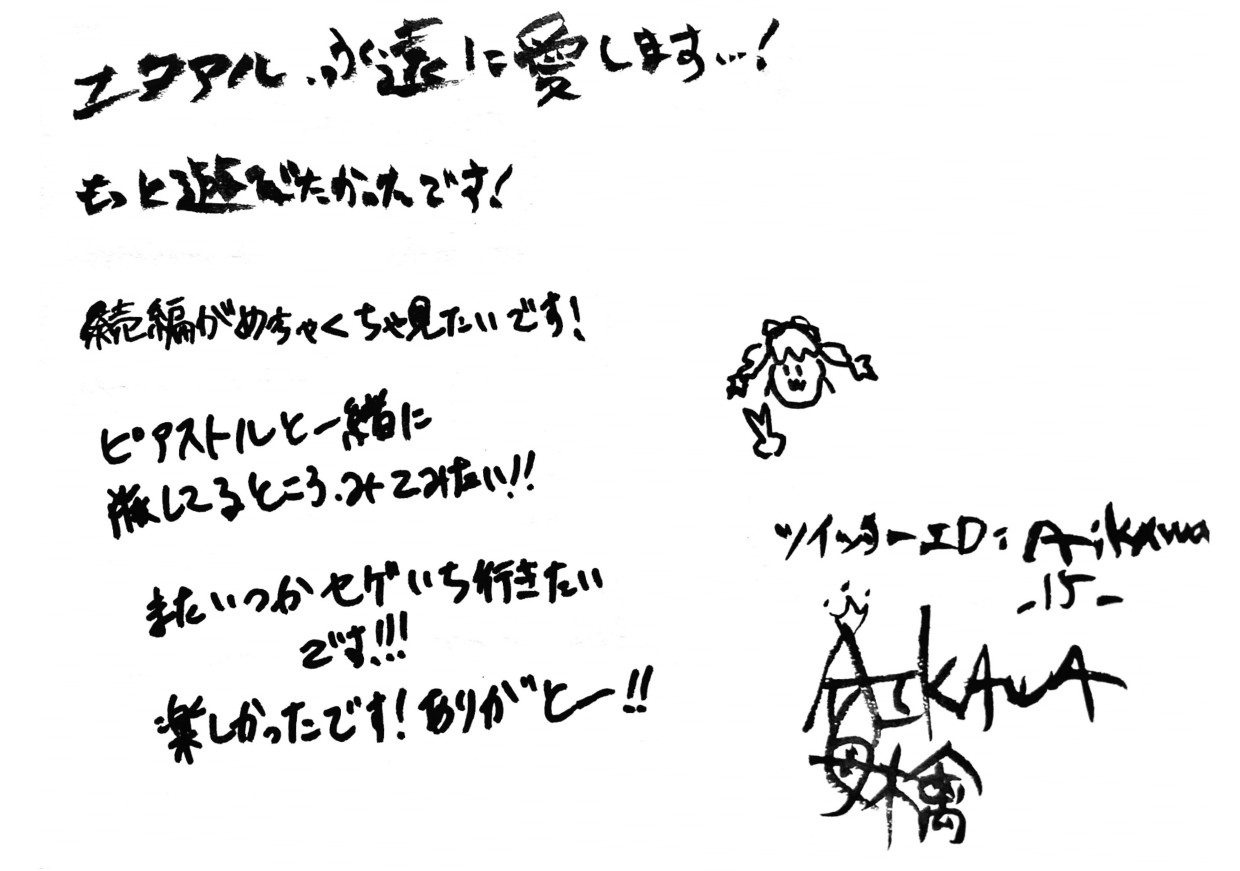 エクアル
遠に愛します…!
もっと遊びたかったです!
続編がめちゃくちゃ見たいです!
ピアストルと一緒に
旅してるところみてみたい!!
またいつかセゲいち行きたい
です!!!
楽しかったです!ありがとー!!
ツイッターID:Aikawa
_15_
AIKAWA